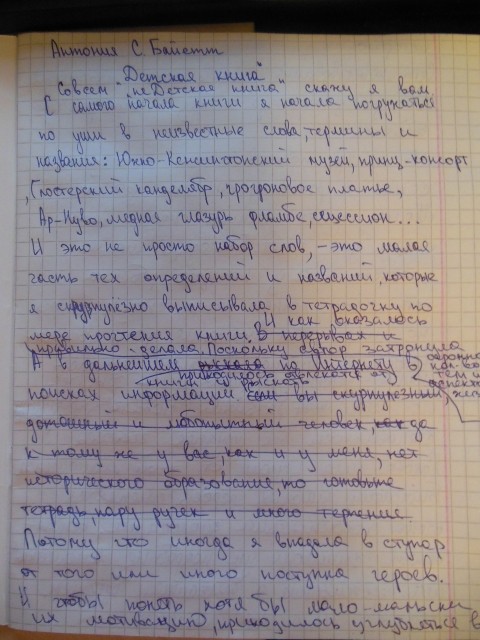 Антония С. Байетт
"Детская книга"
Совсем "неДетская книга" скажу я вам.
С самого начала книги я начала погружаться
по уши в неизвестные слова, термины и
названия: Южно-Кенсингтонский музей, принц-консорт
, Глостерский канделябр, грогроновое платье,
Ар-Нуво, медная глазурь фламбе, сецессион...
И это не просто набор слов, - это малая
часть тех определений и названий, которые
я скурпулёзно выписывала в тетрадочку по
мере прочтения книги. И как оказалось
В перерывах и
правильно делала. Поскольку автор затронула
огромное кол-во тем
А в дальнейшем по Интернету в
приходилось отвлекаться от
книги и рыскать
поисках информации если вы скурпулёзный,
дотошный и любопытный человек, как да
к тому же у вас, как и у меня, нет
исторического образования, то готовьте
тетрадь, пару ручек и много терпения.
Потому что иногда я впадала в ступор
от того или иного поступка героев.
И чтобы понять хотя бы мало-мальски
их мотивацию, приходилось углубляться в